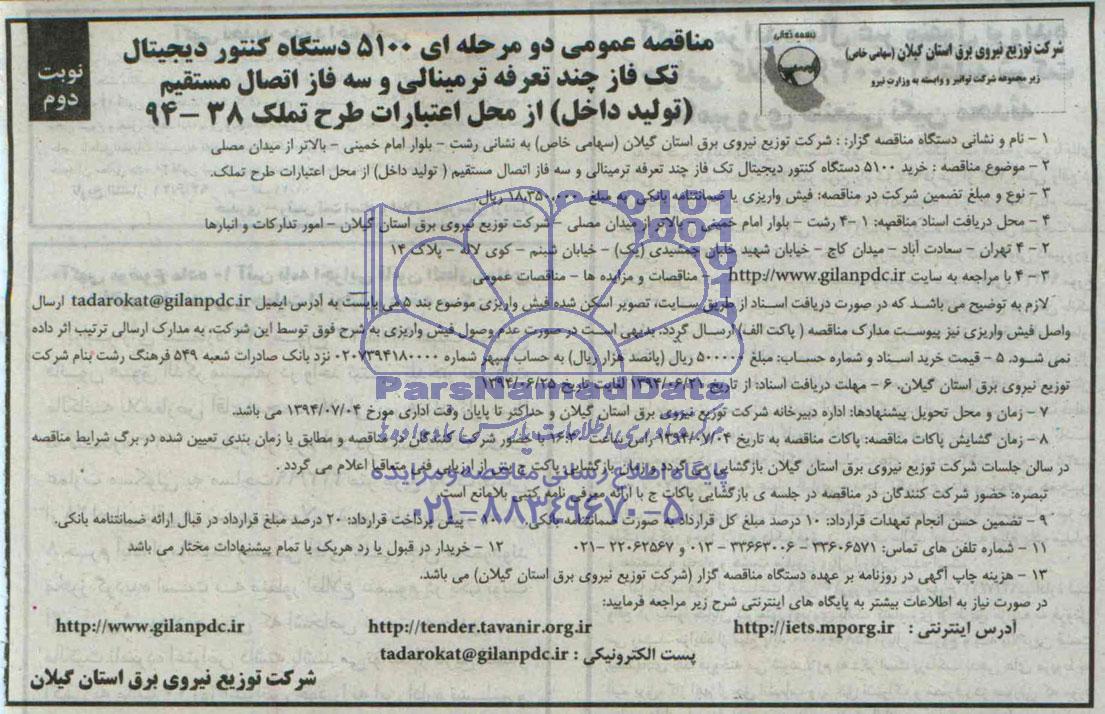 بسمه تعالی
شرکت توزیع نیروی برق استان گیلان (سهامی خاص)
زیر مجموعه شرکت توانیر و وابسته به وزارت نیرو
نوبت
دوم
مناقصه عمومی دو مرحله ای ۵۱۰۰ دستگاه کنتور دیجیتال
تک فاز چند تعرفه ترمینالی و سه فاز اتصال مستقیم
(تولید داخل) از محل اعتبارات طرح تملک ۳۸ – ۹۴
۱ – نام و نشانی دستگاه مناقصه گزار: : شرکت توزیع نیروی برق استان گیلان (سهامی خاص) به نشانی رشت – بلوار امام خمینی – بالاتر از میدان مصلی
۲ – موضوع مناقصه : خرید ۵۱۰۰ دستگاه کنتور دیجیتال تک فاز چند تعرفه ترمینالی و سه فاز اتصال مستقیم ( تولید داخل) از محل اعتبارات طرح تملک.
۳ – نوع و مبلغ تضمین شرکت در مناقصه: فیش واریزی یا ضمانتنامه بانکی به مبلغ ریال.
۴ – محل دریافت اسناد مناقصه: ۱ –۴ رشت – بلوار امام خمینی – بالاتر از میدان مصلی – شرکت توزیع نیروی برق استان گیلان – امور تدارکات و انبارها
۲ – ۴ تهران – سعادت آباد – میدان کاج – خیابان شهید خلبان جمشیدی (یک) – خیابان شبنم – کوی لاله – پلاک ۱۴
۳ – ۴ با مراجعه به سایت http://www.gilanpdc.ir – مناقصات و مزایده ها – مناقصات عمومی
لازم به توضیح می باشد که در صورت دریافت اسناد از طریق سایت، تصویر اسکن شده فیش واریزی موضوع بند ۵ می بایست به آدرس ایمیل tadarokat@gilanpdc.ir ارسال
واصل فیش واریزی نیز پیوست مدارک مناقصه ( پاکت الف) ارسال گردد. بدیهی است در صورت عدم وصول فیش واریزی به شرح فوق توسط این شرکت، به مدارک ارسالی ترتیب اثر داده
نمی شود. ۵ – قیمت خرید اسناد و شماره حساب: مبلغ ۵۰۰۰۰۰ ریال (پانصد هزار ریال) به حساب سپهر شماره ۰۲۰۷۳۹۴۱۸۰۰۰۰ نزد بانک صادرات شعبه ۵۴۹ فرهنگ رشت بنام شرکت
توزیع نیروی برق استان گیلان. ۶ – مهلت دریافت اسناد: از تاریخ ۱۳۹۴/۰۶/۲۱ لغایت تاریخ ۱۳۹۴/۰۶/۲۵
۷ – زمان و محل تحویل پیشنهادها: اداره دبیرخانه شرکت توزیع نیروی برق استان گیلان و حداکثر تا پایان وقت اداری مورخ ۱۳۹۴/۰۷/۰۴ می باشد.
۸ – زمان گشایش پاکات مناقصه: پاکات مناقصه به تاریخ ۱۳۹۴/۰۷/۰۴ راس ساعت با حضور شرکت کنندگان در مناقصه و مطابق با زمان بندی تعیین شده در برگ شرایط مناقصه
در سالن جلسات شرکت توزیع نیروی برق استان گیلان بازگشایی می گردد و زمان بازگشایی پاکت ج پس از ارزیابی فنی متعاقبا اعلام می گردد .
تبصره: حضور شرکت کنندگان در مناقصه در جلسه ی بازگشایی پاکات ج با ارائه معرفی نامه کتبی بلامانع است.
۹ – تضمین حسن انجام تعهدات قرارداد: ۱۰ درصد مبلغ کل قرارداد به صورت ضمانتنامه بانکی. ۱۰ – پیش پرداخت قرارداد: ۲۰ درصد مبلغ قرارداد در قبال ارائه ضمانتنامه بانکی.
۱۱ – شماره تلفن های تماس: ۳۳۶۰۶۵۷۱ – ۳۳۶۶۳۰۰۶ – ۰۱۳ و ۲۲۰۶۲۵۶۷ – ۰۲۱ ۱۲ – خریدار در قبول یا رد هریک یا تمام پیشنهادات مختار می باشد
۱۳ – هزینه چاپ آگهی در روزنامه بر عهده دستگاه مناقصه گزار (شرکت توزیع نیروی برق استان گیلان) می باشد.
در صورت نیاز به اطلاعات بیشتر به پایگاه های اینترنتی شرح زیر مراجعه فرمایید:
آدرس اینترنتی : http://iets.mporg.ir http://tender.tavanir.org.ir http://www.gilanpdc.ir
پست الکترونیکی : tadarokat@gilanpdc.ir
شرکت توزیع نیروی برق استان گیلان
ParsNamadData
پایگاه اطلاع رسانی مناقصه و مزایده
۰۲۱-۸۸۳۴۹۶۷۰-۵